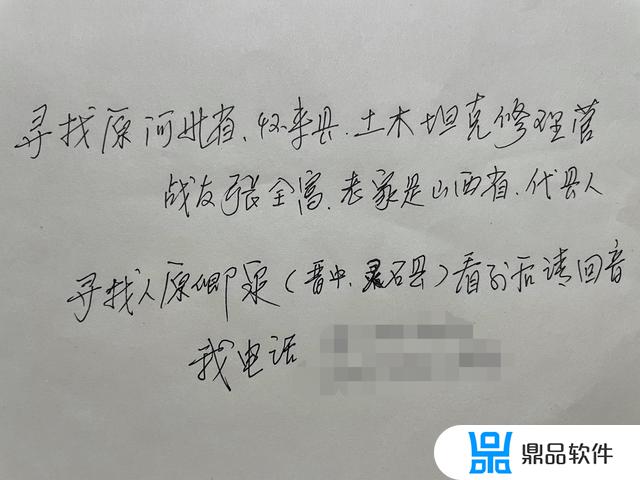 寻找原河北省、怀来县、土木坦克修理营
战友张全富、老家是山西省、代县人
寻找人原卿泉(晋中、灵石县)看到后请回音
我电话
鼎品软件